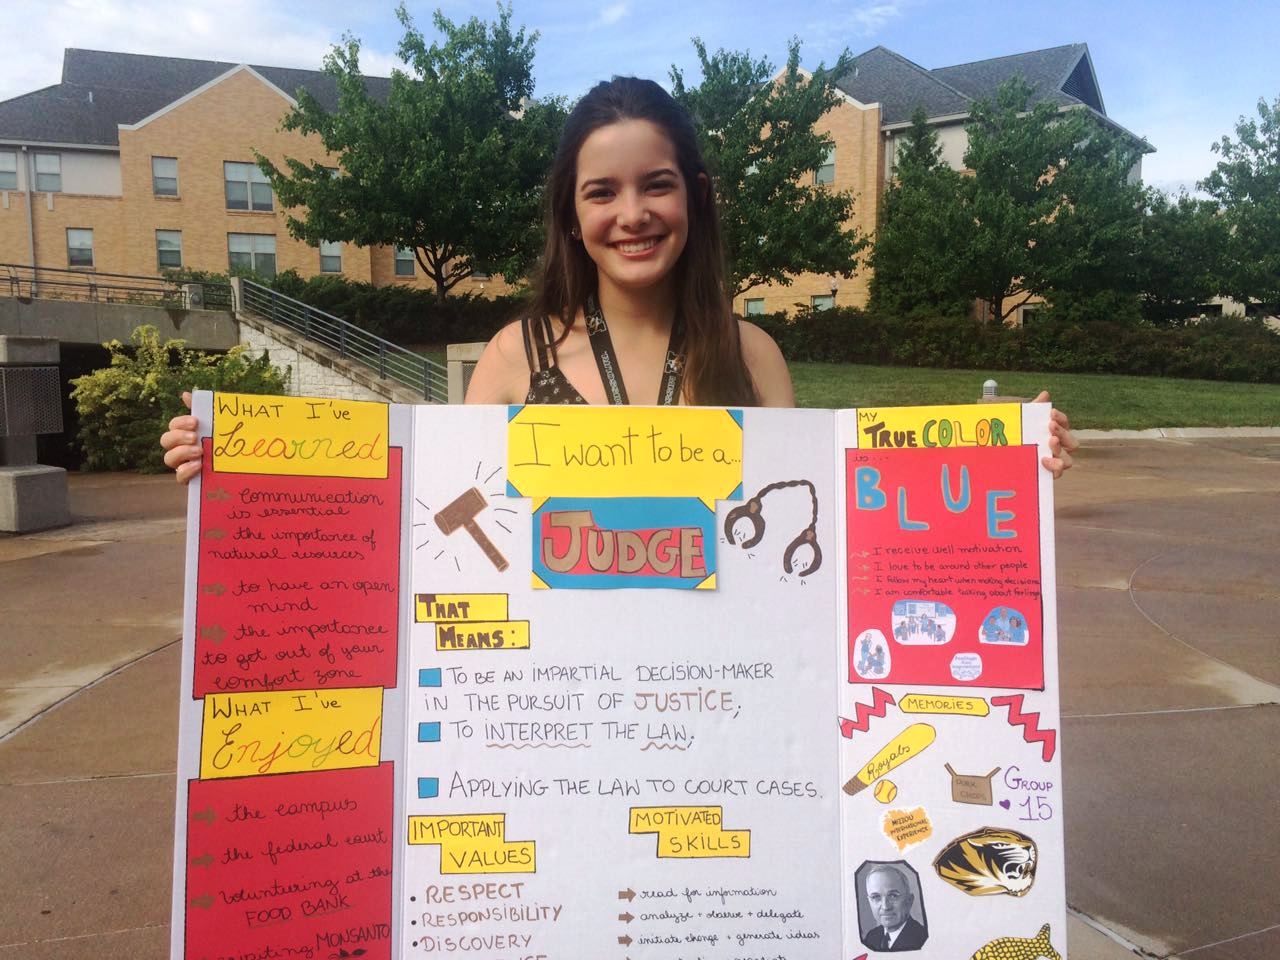 WHAT I'VE
Learned
communication
is essential
the importance of
natural resources
to have an open
mind
the importance
to get out of your
comfort zone
WHAT I'VE
Enjoyed
the campus
the federal court
Volunteering at the
FOOD BANK
MONSANTO
I want to be a...
JUDGE
THAT
MEANS:
TO BE AN IMPARTIAL DECISION-MAKER
IN THE PURSUIT OF JUSTICE;
TO INTERPRET THE LAW;
APPLYING THE LAW TO COURT CASES.
IMPORTANT
VALUES
• RESPECT
• RESPONSIBILITY
• DISCOVERY
MOTIVATED
SKILLS
read for information
analyze + observe + delegate
initiate change + generate ideas
MY
TRUE COLOR
is...
BLUE
I receive well motivation
I love to be around other people
I follow my heart when making decisions
I am comfortable talking about feelings
MEMORIES
Royals
PORK
CHOPS
GROUP
15
MIZZOU
INTERNATIONAL
EXPERIENCE